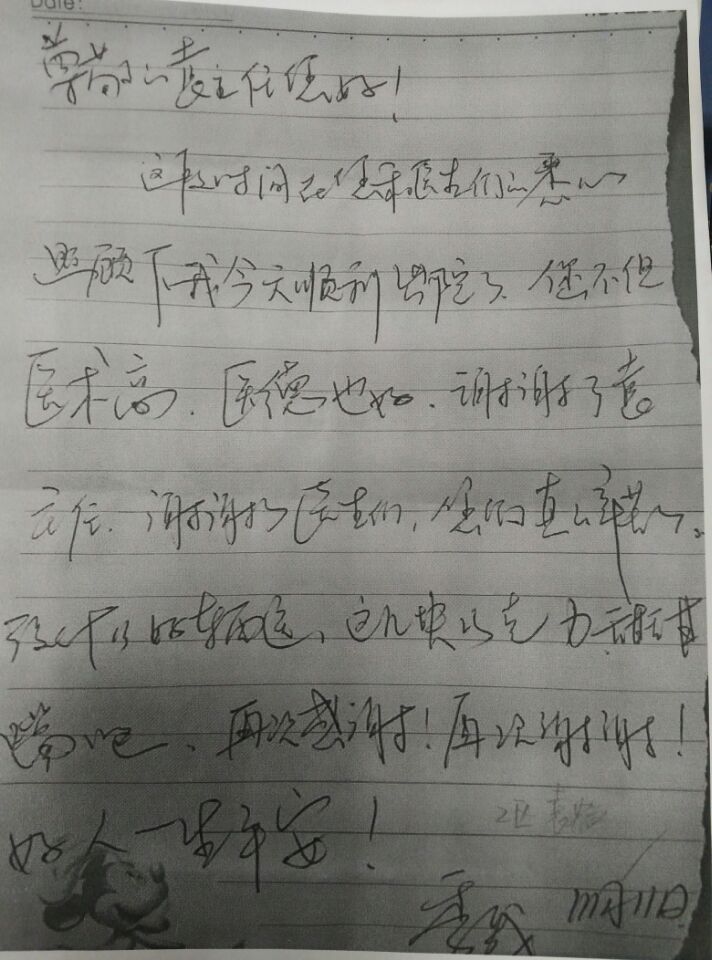 Date:
尊敬的袁主任您好！
这段时间在您和医生们的悉心
照顾下我今天顺利出院了、您不但
医术高、医德也好、谢谢了袁
主任、谢谢了医生们，您们真的辛苦了。
这几块巧克力
吧、再次感谢！再次谢谢！
好人一生平安！
11月11日